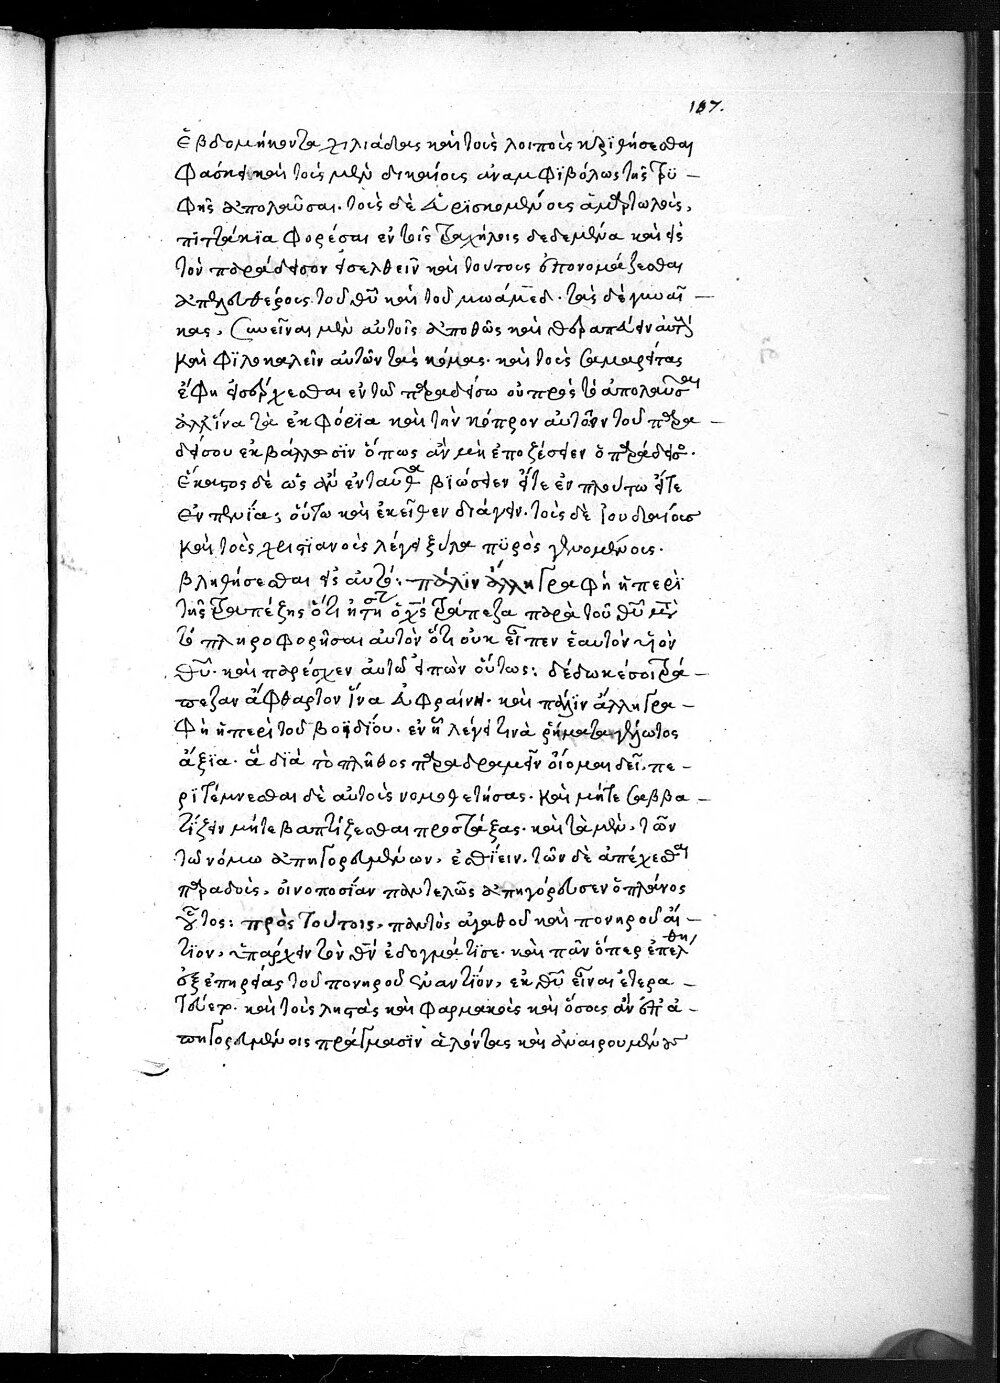 167.
ἑβδομήκοντα χιλιάδας καὶ τοὺς λοιποὺς κλιθήσεσθαι
φάσκει καὶ τοὺς μὲν δικαίους ἀναμφιβόλως τῆς τρυ –
φῆς ἀπολαῦσαι. τοὺς δὲ εὑρισκομένους ἁμαρτωλοὺς,
πιτάκια φορέσαι ἐν τοῖς τραχήλοις δεδεμένα καὶ εἰς
τὸν παράδεισον εἰσελθεῖν καὶ τούτους ἐπονομάζεσθαι
ἀπελευθέρους τοῦ θῦ καὶ τοῦ μωάμεδ. τὰς δὲ γυναῖ –
κας, συνεῖναι μὲν αὐτοῖς
καὶ φιλοκαλεῖν αὐτῶν τὰς κόμας. καὶ τοὺς σαμαρείτας
ἔφη εἰσέρχεσθαι ἐν τῶ παραδείσω οὐ πρὸς τὸ ἀπολαῦσαι
ἀλλ' ἵνα τὰ ἐκφόρια καὶ τὴν κόπρον αὐτῶν τοῦ παρα –
δείσου ἐκβάλλωσιν ὅπως ἂν μὴ ἐποζέσειεν ὁ παράδεισος.
ἕκαστος δὲ ὡς ἂν ἐνταῦθα βιώσειεν εἴτε ἐν πλούτω εἴτε
ἐν πενία, οὕτω καὶ ἐκεῖθεν διάγειν. τοὺς δὲ ἰουδαίους
καὶ τοὺς χριστιανοὺς λέγει ξύλα πυρὸς γενομένους.
βληθήσεσθαι εἰς αὐτό: πάλιν ἄλλη γραφὴ ἡ περὶ
τῆς τραπέζης ὅτι ᾐτήσατο ὁ χς τράπεζα παρὰ τοῦ θῦ
τὸ πληροφορῆσαι αὐτὸν ὅτι οὐκ εἶπεν ἑαυτὸν υἱὸν
θῦ. καὶ παρέσχεν αὐτῶ εἰπὼν οὕτως: δέδωκά σοι τρά –
πεζαν ἄφθαρτον ἵνα εὐφραίνη. καὶ πάλιν ἄλλη γρα –
φὴ ἡ περὶ τοῦ βοϊδίου. ἐν ἧ λέγει τινὰ ῥήματα γέλωτος
ἄξια. ἃ διὰ τὸ πλῆθος παραδραμεῖν οἴομαι δεῖ. πε –
ριτέμνεσθαι δὲ αὐτοὺς νομοθετήσας. καὶ μήτε σαββα –
τίζειν μήτε βαπτίζεσθαι προστάξας. καὶ τὰ μὲν, τῶν
τῶ νόμω ἀπηγορευμένων, ἐσθίειν. τῶν δὲ ἀπέχεσθαι
παραδοὺς, οἰνοποσίαν παντελῶς ἀπηγόρευσεν ὁ πλάνος
οὗτος: πρὸς τούτοις, παντὸς ἀγαθοῦ καὶ πονηροῦ αἴ –
τιον, ὑπάρχειν τὸν θν ἐδογμάτισε. καὶ πᾶν ὅπερ ἐπέλθη
ἐξ ἐπηρείας τοῦ πονηροῦ ἐναντίον, ἐκ θῦ εἶναι ἕτερα –
καὶ τοὺς ληστὰς καὶ φαρμακοὺς καὶ ὅσους ἂν ἐπ' ἀ –
πηγορευμένοις πράγμασιν ἁλόντας καὶ ἀναιρουμένους